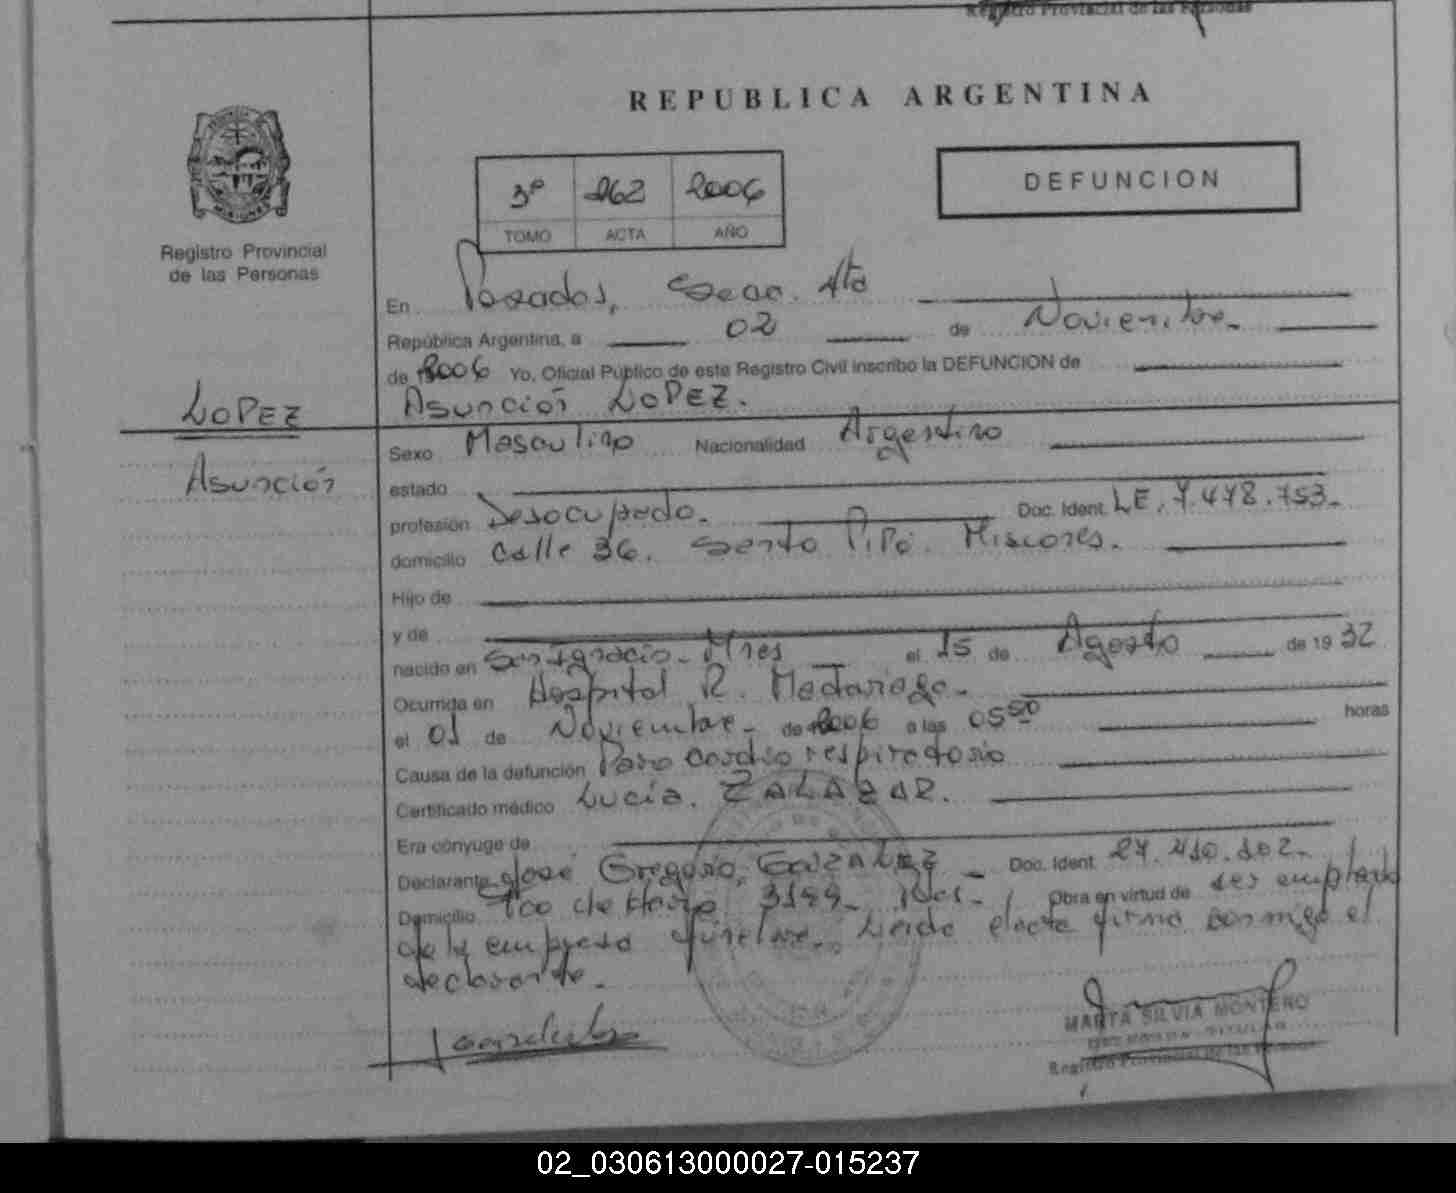 Registro Provincial de las Personas
REPUBLICA ARGENTINA
DEFUNCION
3º 262 2006
TOMO ACTA AÑO
Registro Provincial
de las Personas
En Posadas, Secc. 4ta
República Argentina, a 02 de Noviembre
de 2006 Yo, Oficial Público de este Registro Civil inscribo la DEFUNCION de
Asunción LOPEZ.
LOPEZ
Asunción
Sexo Masculino Nacionalidad Argentino
estado
profesión Desocupado. Doc. Ident. LE. 7.478.753.
domicilio Calle 36. Santo Pipó. Misiones.
Hijo de
y de
nacido en San Ignacio - Mnes el 15 de Agosto de 1932
Ocurrida en Hospital R. Madariaga.
el 01 de Noviembre de 2006 a las 05 horas
Causa de la defunción Paro cardio respiratorio
Certificado médico Lucía. ZALAZAR.
Era cónyuge de
Declarante José Gregorio, GONZALEZ Doc. Ident. 27.410.102.
Domicilio 3199 Obra en virtud de ser empleado
de la empresa Leida el acta firma conmigo el
declarante.
MARTA SILVIA MONTERO
TITULAR
Registro Provincial de las Personas
02_030613000027-015237